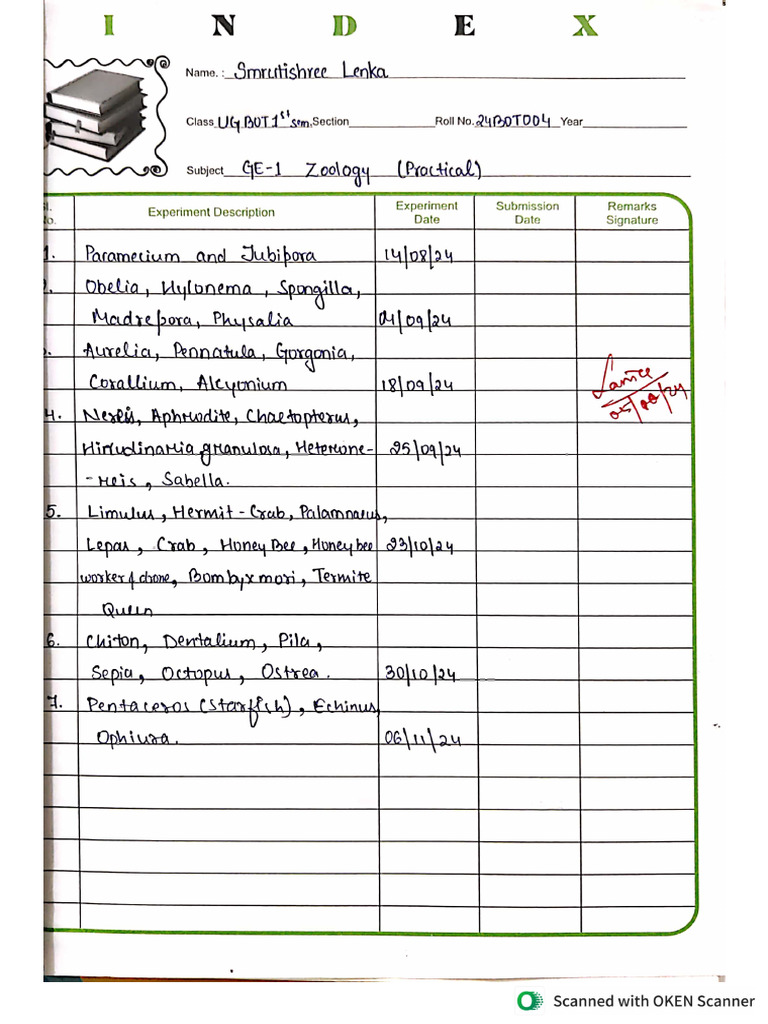 INDEX
Name. : Smrutishree Lenka
Class UG BOT 1st sem. Section Roll No. 24BOT004 Year
Subject GE-1 Zoology (Practical)
Experiment Description Experiment Date Submission Date Remarks Signature
1. Paramecium and Tubipora 14/08/24
Obelia, Hylonema, Spongilla,
Madrepora, Physalia 04/09/24
Aurelia, Pennatula, Gorgonia,
Corallium, Alcyonium 18/09/24
4. Nereis, Aphrodite, Chaetopterus,
Hirrudinaria granulosa, Heterone- 25/09/24
-reis, Sabella.
5. Limulus, Hermit-Crab, Palamnaeus,
Lepas, Crab, Honey Bee, Honeybee 23/10/24
worker & drone, Bombyx mori, Termite
Queen
6. Chiton, Dentalium, Pila,
Sepia, Octopus, Ostrea. 30/10/24
7. Pentaceros (Starfish), Echinus,
Ophiura. 06/11/24
Scanned with OKEN Scanner